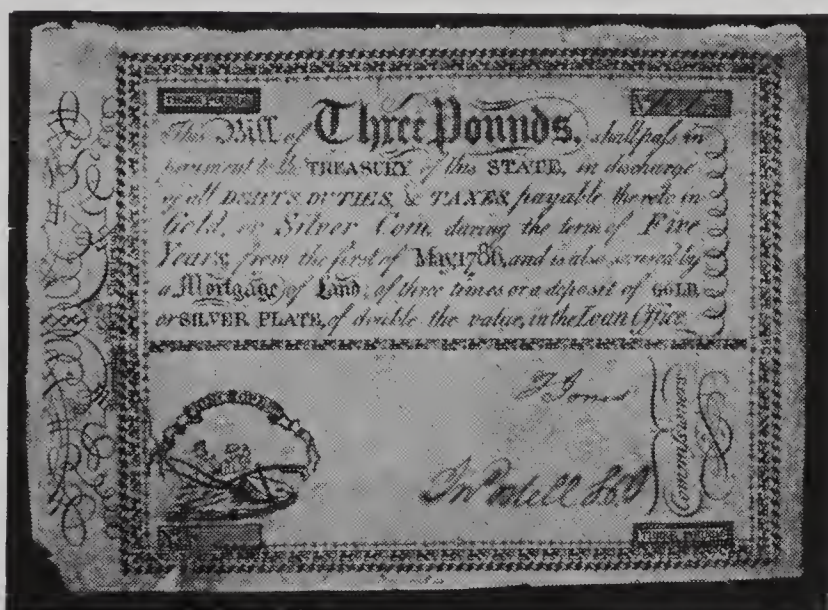 THREE POUNDS
This Bill of Three Pounds, shall pass in
payment to the TREASURY of this STATE, in discharge
of all DEBTS, DUTIES, & TAXES, payable thereto in
Gold, or Silver Coin, during the term of Five
Years, from the first of May, 1786, and is also secured by
a Mortgage of Land, of three times or a deposit of GOLD,
or SILVER PLATE, of double the value, in the Loan Office.
T. Jones
Commissioners
THREE POUNDS